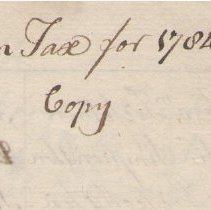 Tax for 1784
Copy